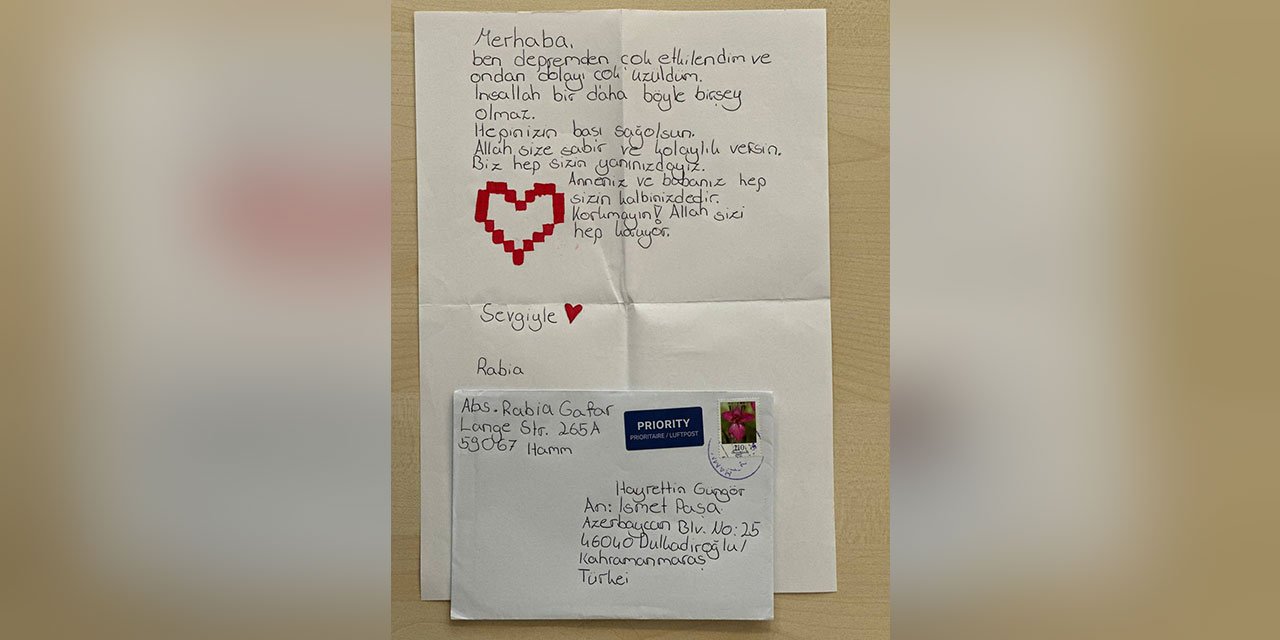 Merhaba,
ben depremden çok etkilendim ve
ondan dolayı çok üzüldüm.
İnsallah bir daha böyle birşey
olmaz.
Hepinizin bası sağolsun.
Allah size sabir ve kolaylık versin.
Biz hep sizin yanınızdayız.
Anneniz ve babanız hep
sizin kalbinizdedir.
Korkmayın! Allah sizi
hep koruyor.
Sevgiyle
Rabia
Abs. Rabia Gafar
Lange Str. 265A
59067 Hamm
PRIORITY
PRIORITAIRE / LUFTPOST
Hayrettin Güngör
An: Ismet Pasa
Azerbaycan Blv. No: 25
46040 Dulkadiroğlu/
Kahramanmaraş
Türkei